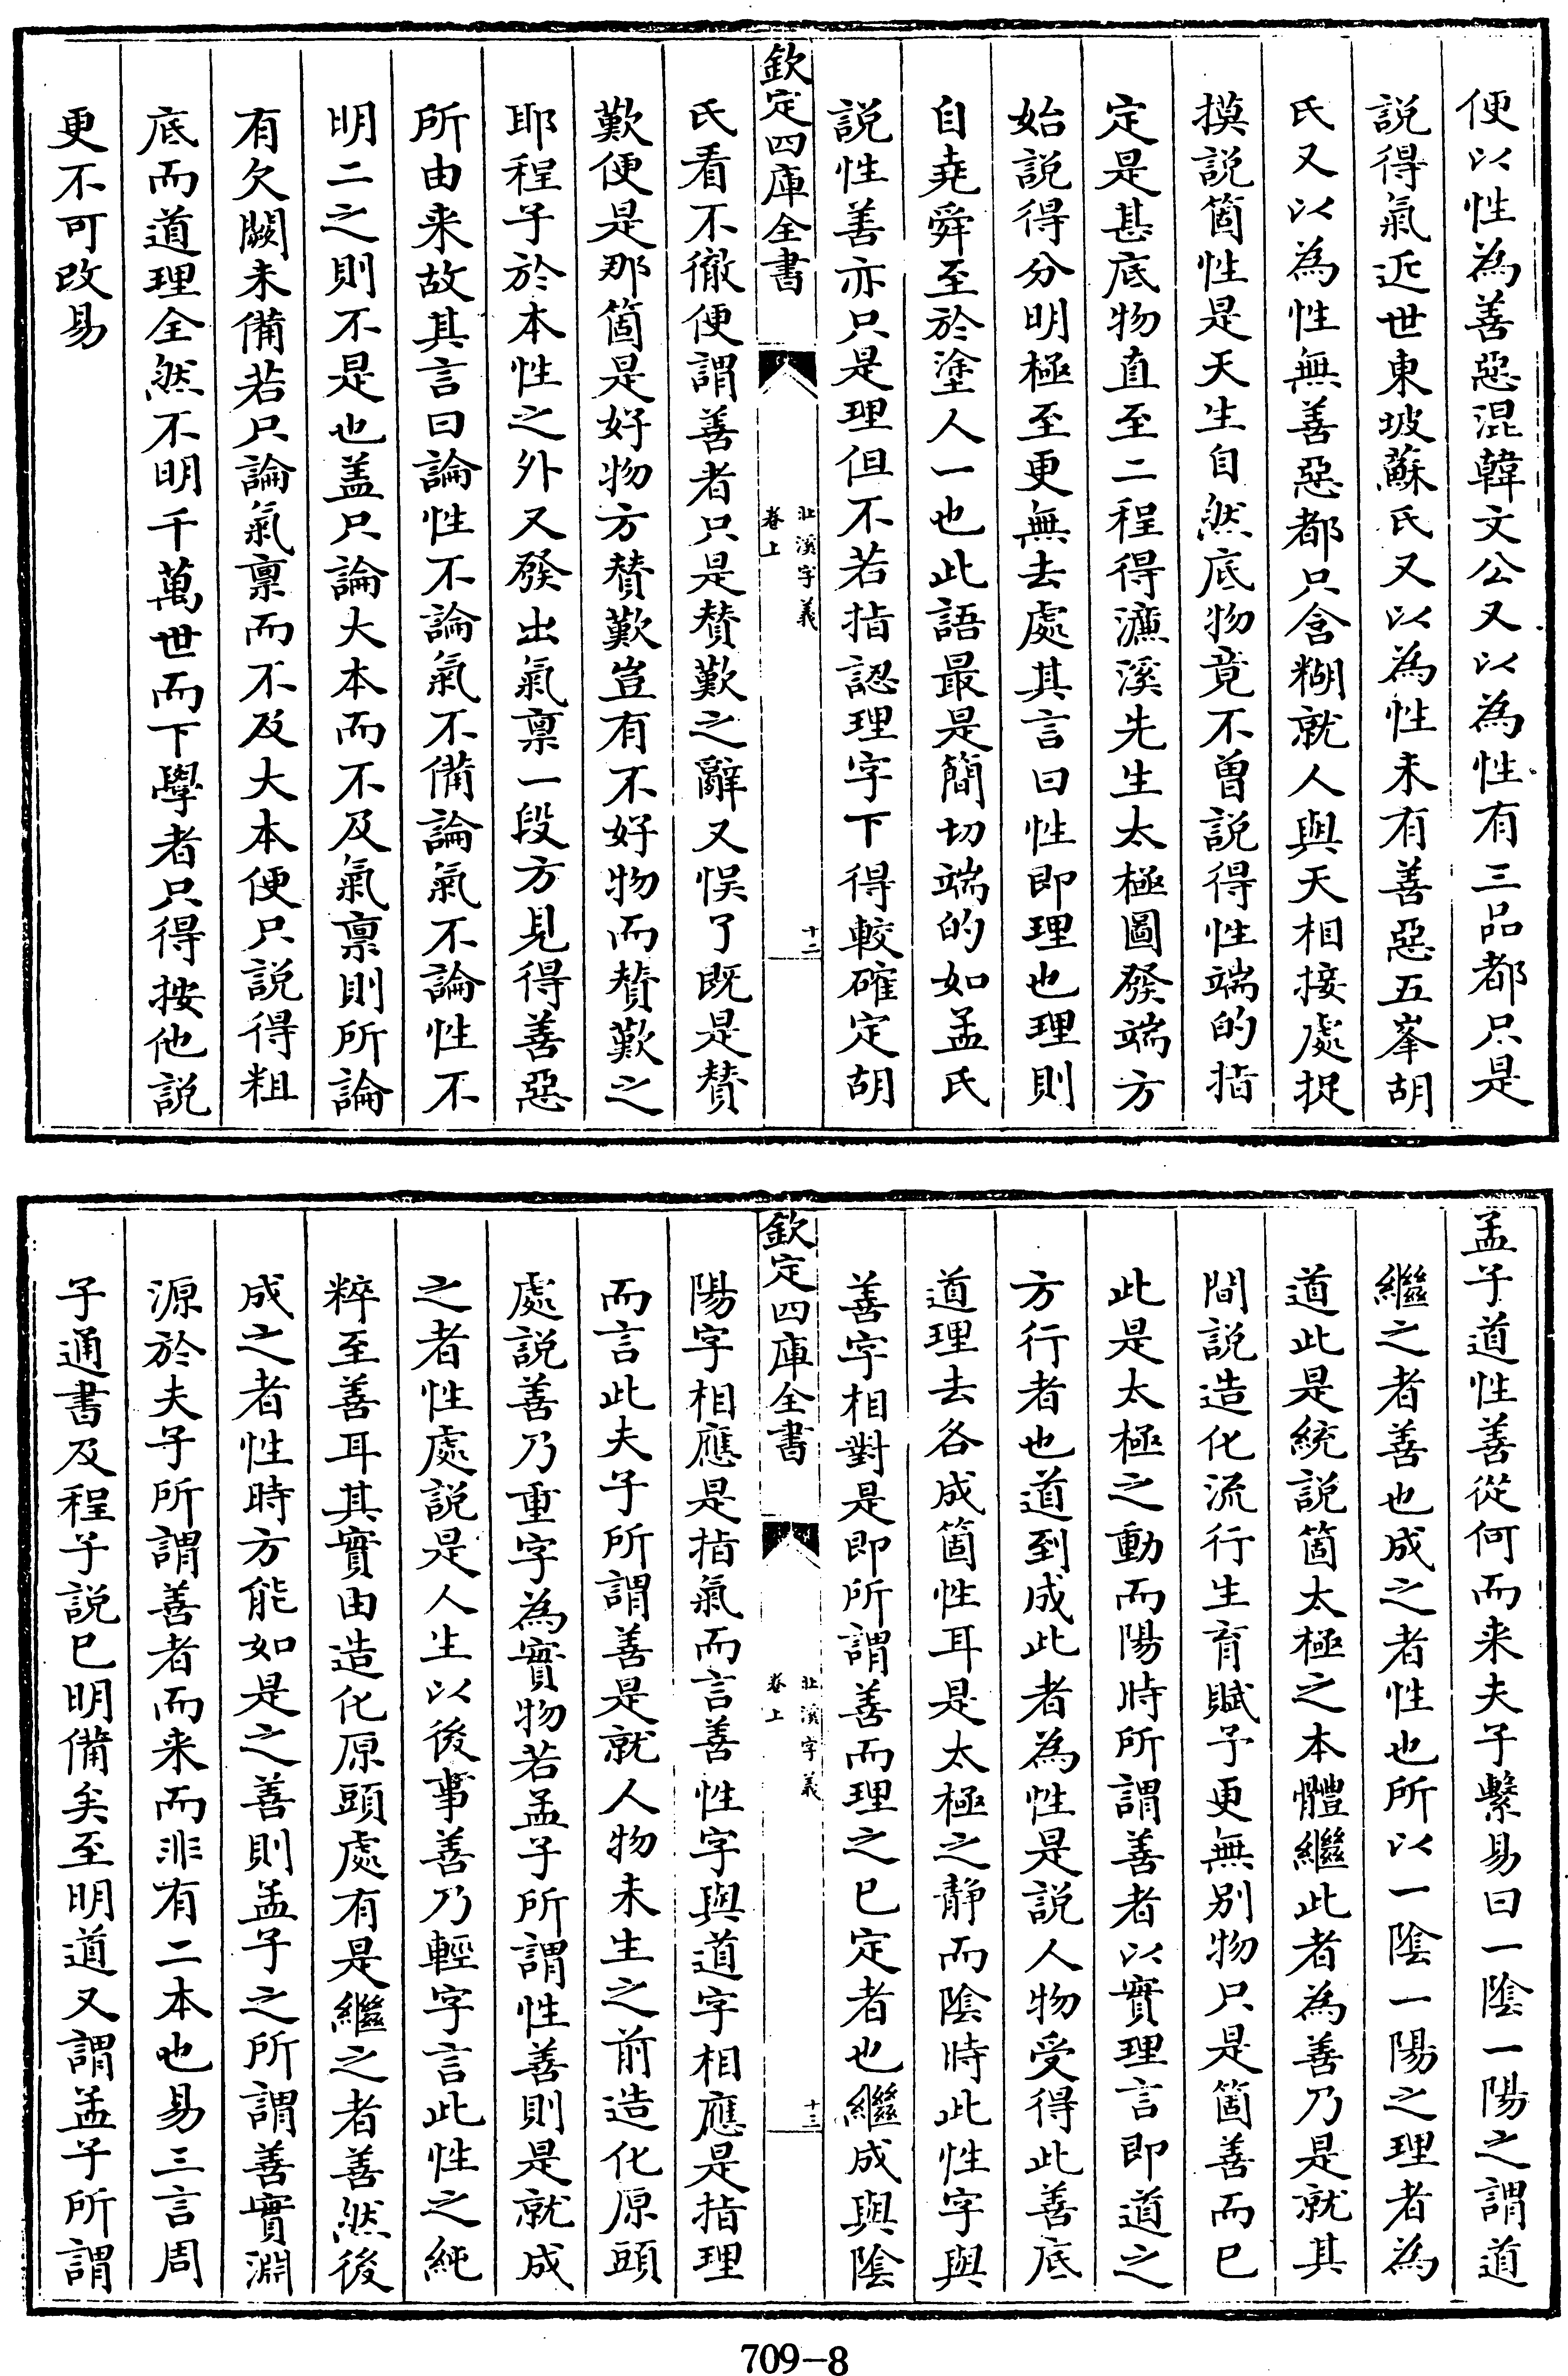 便以性為善惡混韓文公又以為性有三品都只是
説得氣近世東坡蘇氏又以為性未有善惡五峯胡
氏又以為性無善惡都只含糊就人與天相接處捉
摸説箇性是天生自然底物竟不曾説得性端的指
定是甚底物直至二程得濂溪先生太極圖發端方
始説得分明極至更無去處其言曰性即理也理則
自堯舜至於塗人一也此語最是簡切端的如孟氏
説性善亦只是理但不若指認理字下得較確定胡
欽定四庫全書
北溪字義
卷上
十二
氏看不徹便謂善者只是賛歎之辭又悞了既是賛
歎便是那箇是好物方賛歎豈有不好物而賛歎之
耶程子於本性之外又發出氣禀一段方見得善惡
所由来故其言曰論性不論氣不備論氣不論性不
明二之則不是也盖只論大本而不及氣禀則所論
有欠闕未備若只論氣禀而不及大本便只説得粗
底而道理全然不明千萬世而下學者只得按他説
更不可改易
孟子道性善從何而来夫子繫易曰一陰一陽之謂道
繼之者善也成之者性也所以一陰一陽之理者為
道此是統説箇太極之本體繼此者為善乃是就其
間説造化流行生育賦予更無别物只是箇善而已
此是太極之動而陽時所謂善者以實理言即道之
方行者也道到成此者為性是説人物受得此善底
道理去各成箇性耳是太極之静而陰時此性字與
善字相對是即所謂善而理之已定者也繼成與陰
欽定四庫全書
北溪字義
卷上
十三
陽字相應是指氣而言善性字與道字相應是指理
而言此夫子所謂善是就人物未生之前造化原頭
處説善乃重字為實物若孟子所謂性善則是就成
之者性處説是人生以後事善乃輕字言此性之純
粹至善耳其實由造化原頭處有是繼之者善然後
成之者性時方能如是之善則孟子之所謂善實淵
源於夫子所謂善者而来而非有二本也易三言周
子通書及程子説已明備矣至明道又謂孟子所謂
709-8